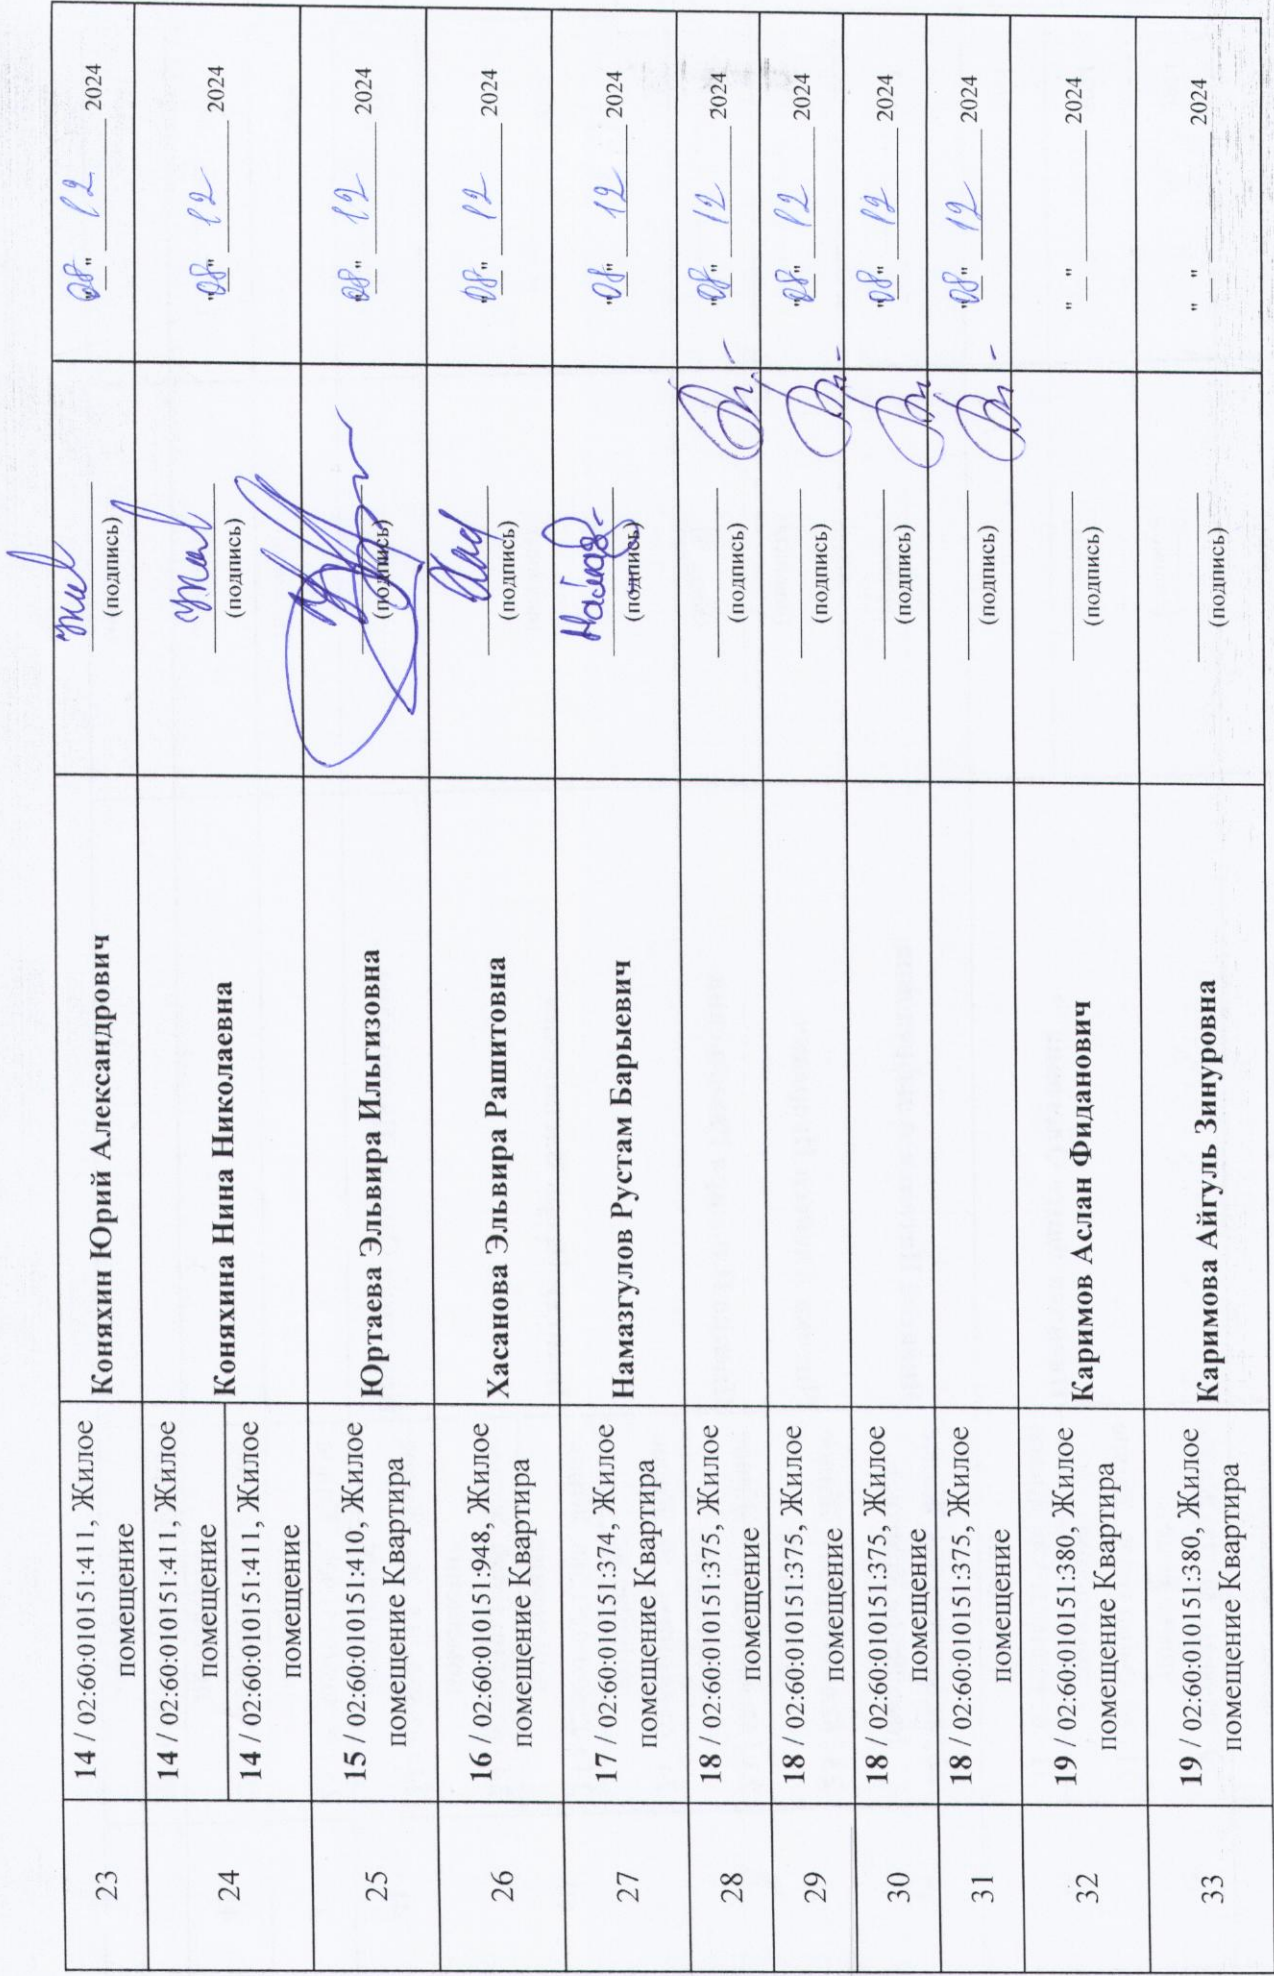 23 14 / 02:60:010151:411, Жилое помещение Коняхин Юрий Александрович (подпись) "08" 12 2024
24 14 / 02:60:010151:411, Жилое помещение Коняхина Нина Николаевна (подпись) "08" 12 2024
14 / 02:60:010151:411, Жилое помещение
25 15 / 02:60:010151:410, Жилое помещение Квартира Юртаева Эльвира Ильгизовна (подпись) "08" 12 2024
26 16 / 02:60:010151:948, Жилое помещение Квартира Хасанова Эльвира Рашитовна (подпись) "08" 12 2024
27 17 / 02:60:010151:374, Жилое помещение Квартира Намазгулов Рустам Барыевич (подпись) "08" 12 2024
28 18 / 02:60:010151:375, Жилое помещение (подпись) "08" 12 2024
29 18 / 02:60:010151:375, Жилое помещение (подпись) "08" 12 2024
30 18 / 02:60:010151:375, Жилое помещение (подпись) "08" 12 2024
31 18 / 02:60:010151:375, Жилое помещение (подпись) "08" 12 2024
32 19 / 02:60:010151:380, Жилое помещение Квартира Каримов Аслан Фиданович (подпись) " " 2024
33 19 / 02:60:010151:380, Жилое помещение Квартира Каримова Айгуль Зинуровна (подпись) " " 2024